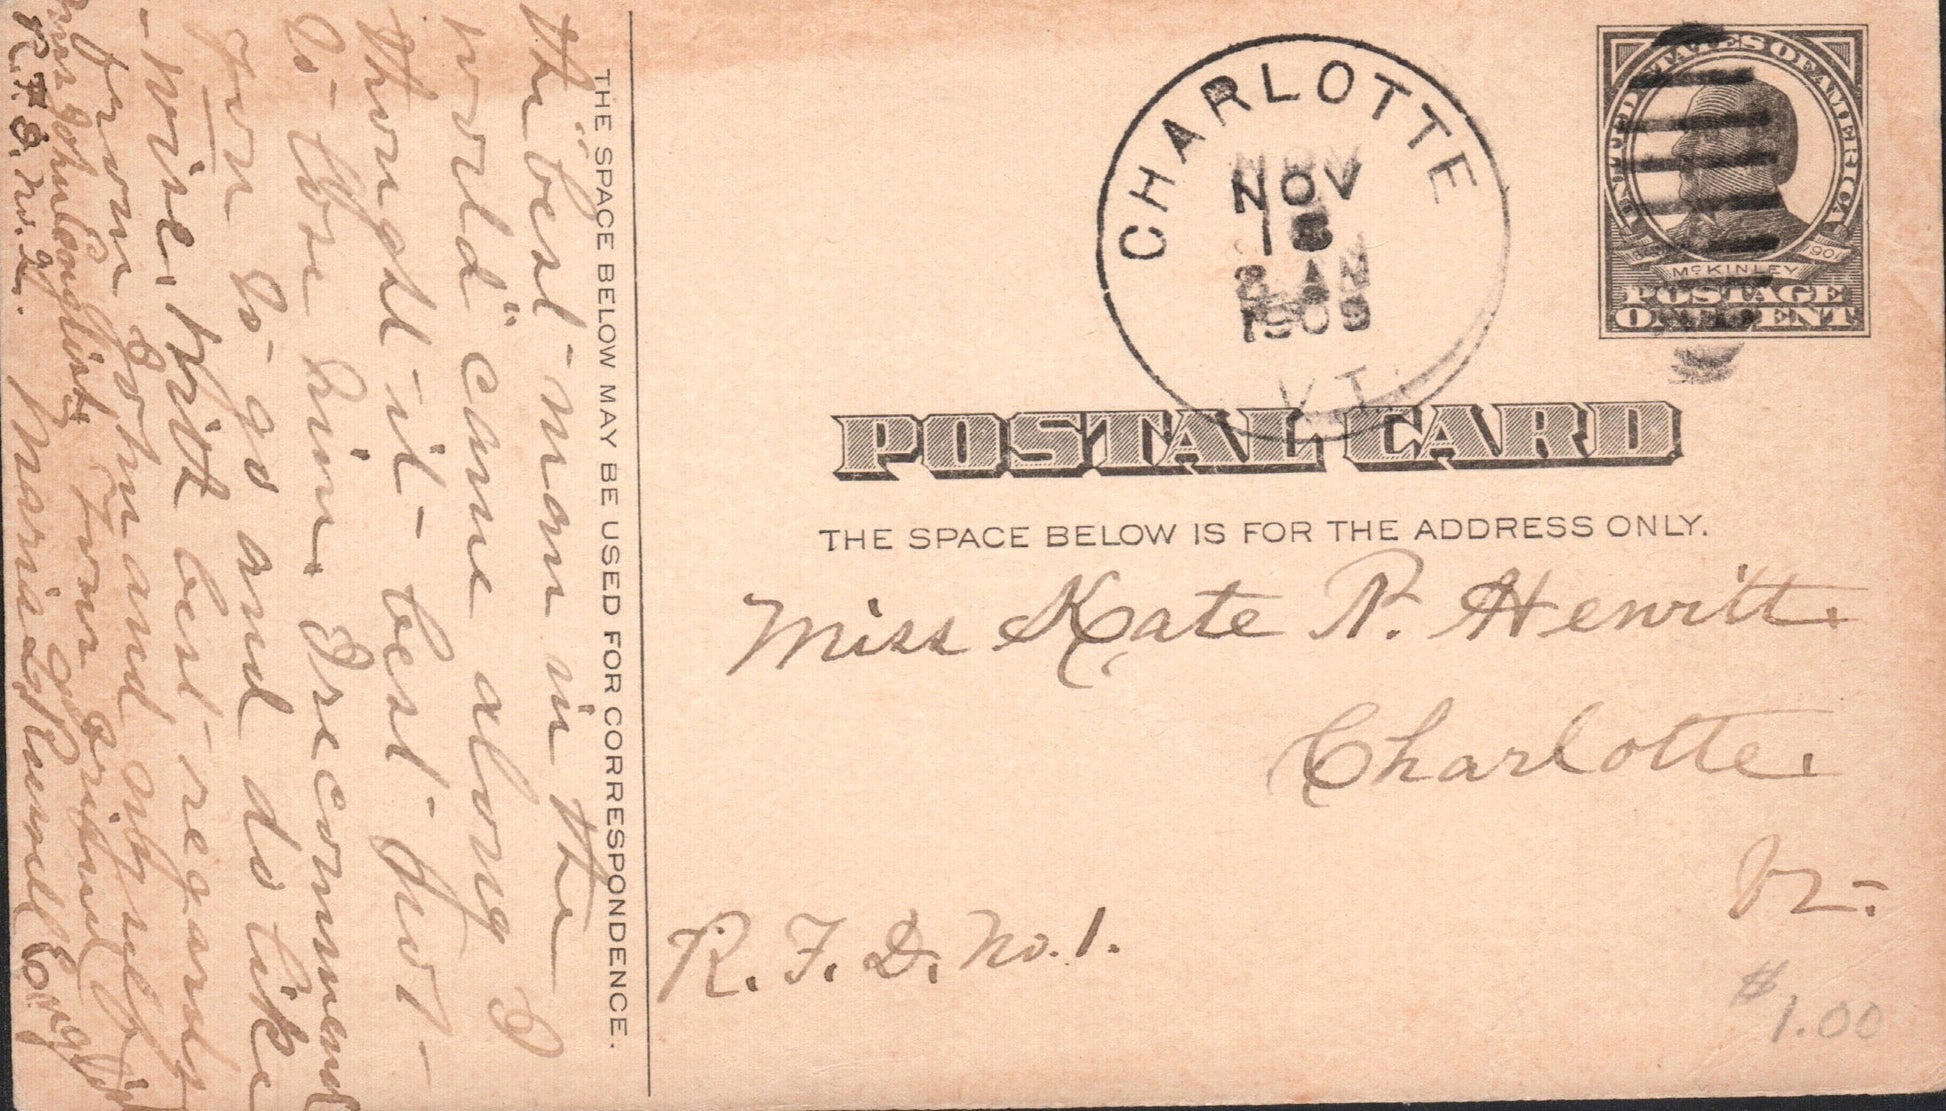 CHARLOTTE
NOV
18
8 AM
1909
VT.
UNITED STATES OF AMERICA
1843
1901
McKINLEY
POSTAGE
ONE CENT
POSTAL CARD
THE SPACE BELOW IS FOR THE ADDRESS ONLY.
Miss Kate P. Hewitt.
Charlotte.
Vt.
R. F. D. No. 1.
$1.00
THE SPACE BELOW MAY BE USED FOR CORRESPONDENCE.
the best man in the
world" came along I
thought it best
to love him. I recommend
you to go and do like
wise. With best regards
from John and myself
Your friend
Mrs John
R. F. D. No.